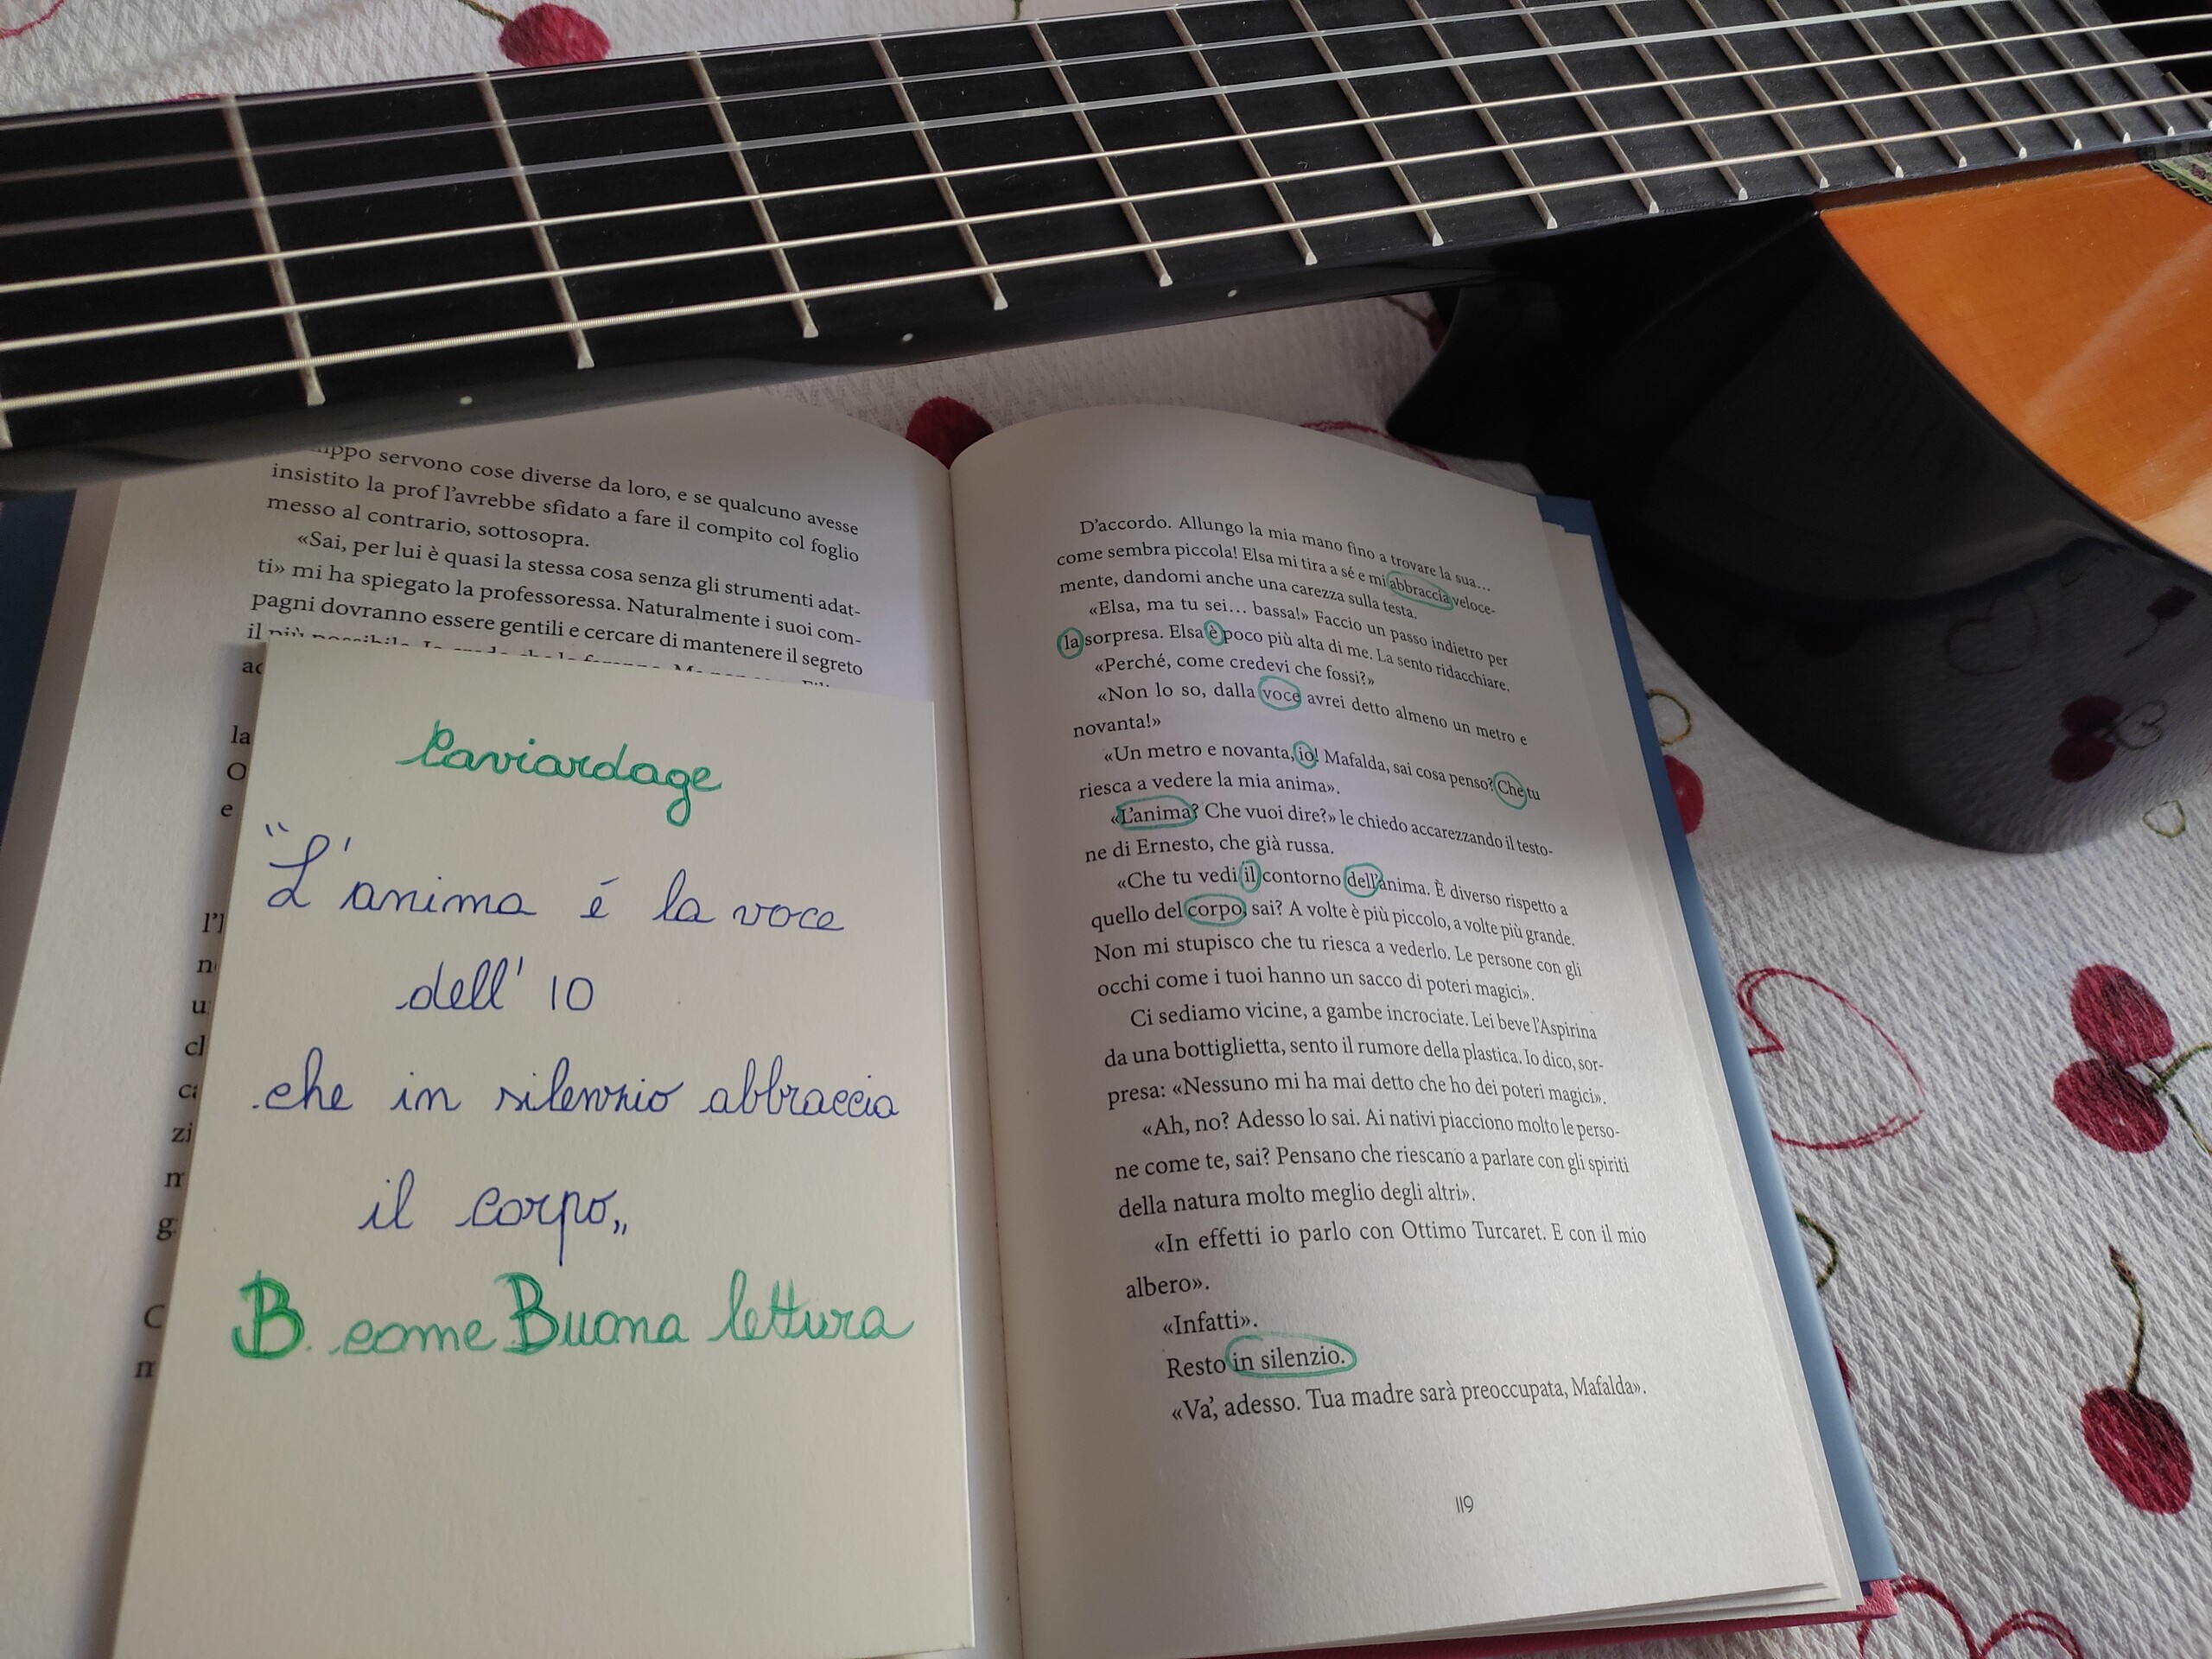 servono cose diverse da loro, e se qualcuno avesse
insistito la prof l'avrebbe sfidato a fare il compito col foglio
messo al contrario, sottosopra.
«Sai, per lui è quasi la stessa cosa senza gli strumenti adat-
ti» mi ha spiegato la professoressa. Naturalmente i suoi com-
pagni dovranno essere gentili e cercare di mantenere il segreto
il più possibile.
la
O
e
Caviardage
"L'anima é la voce
dell' IO
che in silenzio abbraccia
il corpo„
B come Buona lettura
D'accordo. Allungo la mia mano fino a trovare la sua...
come sembra piccola! Elsa mi tira a sé e mi abbraccia veloce-
mente, dandomi anche una carezza sulla testa.
«Elsa, ma tu sei... bassa!» Faccio un passo indietro per
la sorpresa. Elsa è poco più alta di me. La sento ridacchiare.
«Perché, come credevi che fossi?»
«Non lo so, dalla voce avrei detto almeno un metro e
novanta!»
«Un metro e novanta, io! Mafalda, sai cosa penso? Che tu
riesca a vedere la mia anima».
«L'anima? Che vuoi dire?» le chiedo accarezzando il testo-
ne di Ernesto, che già russa.
«Che tu vedi il contorno dell'anima. È diverso rispetto a
quello del corpo, sai? A volte è più piccolo, a volte più grande.
Non mi stupisco che tu riesca a vederlo. Le persone con gli
occhi come i tuoi hanno un sacco di poteri magici».
Ci sediamo vicine, a gambe incrociate. Lei beve l'Aspirina
da una bottiglietta, sento il rumore della plastica. Io dico, sor-
presa: «Nessuno mi ha mai detto che ho dei poteri magici».
«Ah, no? Adesso lo sai. Ai nativi piacciono molto le perso-
ne come te, sai? Pensano che riescano a parlare con gli spiriti
della natura molto meglio degli altri».
«In effetti io parlo con Ottimo Turcaret. E con il mio
albero».
«Infatti».
Resto in silenzio.
«Va', adesso. Tua madre sarà preoccupata, Mafalda».
119